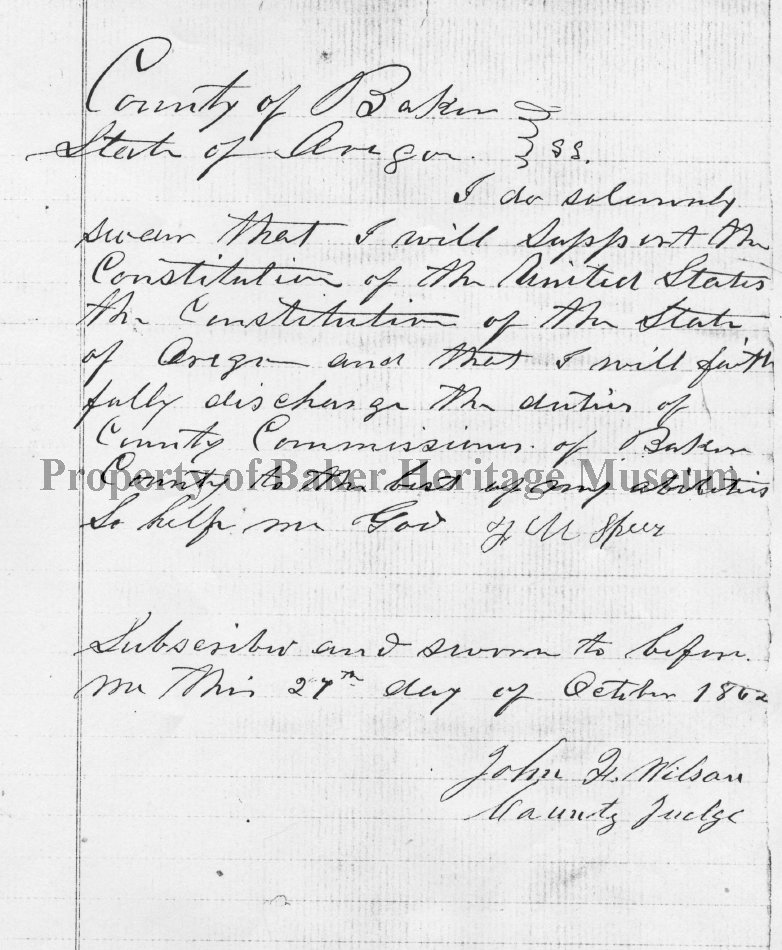 County of Baker
State of Oregon } SS.
I do solemnly
swear that I will support the
Constitution of the United States
the Constitution of the State
of Oregon and that I will faith
fully discharge the duties of
County Commissioner of Baker
Property of Baker Heritage Museum
County to the best of my abilities
So help me God F M Speer
Subscribed and sworn to before
me this 27th day of October 1862
John F. Wilson
County Judge